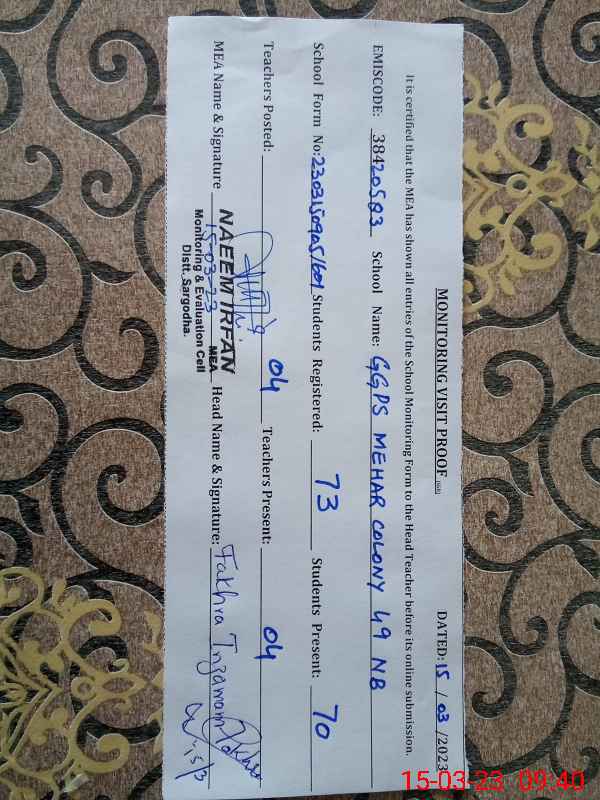 MONITORING VISIT PROOF (668)
DATED: 15 / 03 /2023
It is certified that the MEA has shown all entries of the School Monitoring Form to the Head Teacher before its online submission.
EMISCODE: 38420583 School Name: GGPS MEHAR COLONY 49 NB
School Form No: Students Registered: 73 Students Present: 70
Teachers Posted: 04 Teachers Present: 04
MEA Name & Signature Head Name & Signature: Fakhra Inzamam
NAEEM IRFAN
15-03-23 MEA
Monitoring & Evaluation Cell
Distt. Sargodha.
15/3
15-03-23 09:40